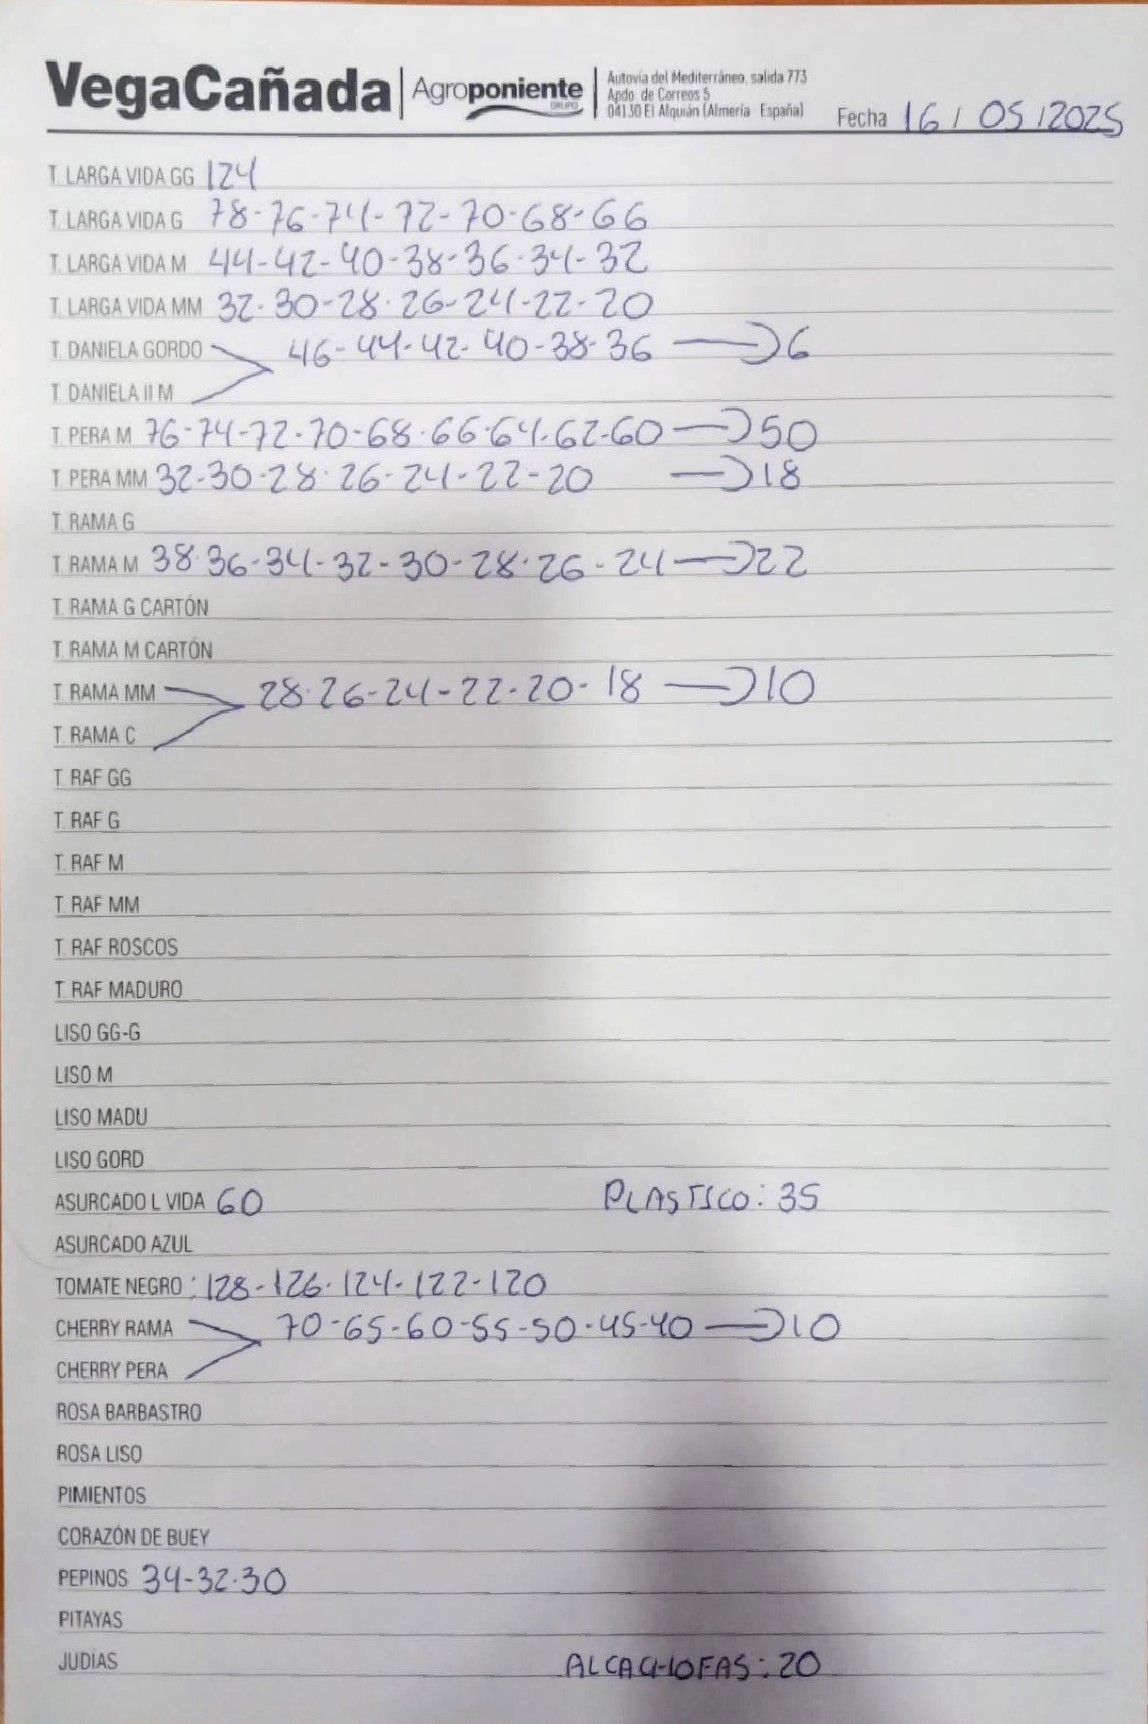 VegaCañada | Agroponiente GRUPO | Autovía del Mediterráneo, salida 773
Apdo. de Correos 5
04130 El Alquián (Almería España)
Fecha 16 / 05 / 2025
T. LARGA VIDA GG 124
T. LARGA VIDA G 78-76-74-72-70-68-66
T. LARGA VIDA M 44-42-40-38-36-34-32
T. LARGA VIDA MM 32-30-28-26-24-22-20
T. DANIELA GORDO 46-44-42-40-38-36 → 6
T. DANIELA II M
T. PERA M 76-74-72-70-68-66-64-62-60 → 50
T. PERA MM 32-30-28-26-24-22-20 → 18
T. RAMA G
T. RAMA M 38-36-34-32-30-28-26-24 → 22
T. RAMA G CARTÓN
T. RAMA M CARTÓN
T. RAMA MM 28-26-24-22-20-18 → 10
T. RAMA C
T. RAF GG
T. RAF G
T. RAF M
T. RAF MM
T. RAF ROSCOS
T. RAF MADURO
LISO GG-G
LISO M
LISO MADU
LISO GORD
ASURCADO L VIDA 60 PLASTICO: 35
ASURCADO AZUL
TOMATE NEGRO : 128-126-124-122-120
CHERRY RAMA 70-65-60-55-50-45-40 → 10
CHERRY PERA
ROSA BARBASTRO
ROSA LISO
PIMIENTOS
CORAZÓN DE BUEY
PEPINOS 34-32-30
PITAYAS
JUDÍAS ALCACHOFAS: 20